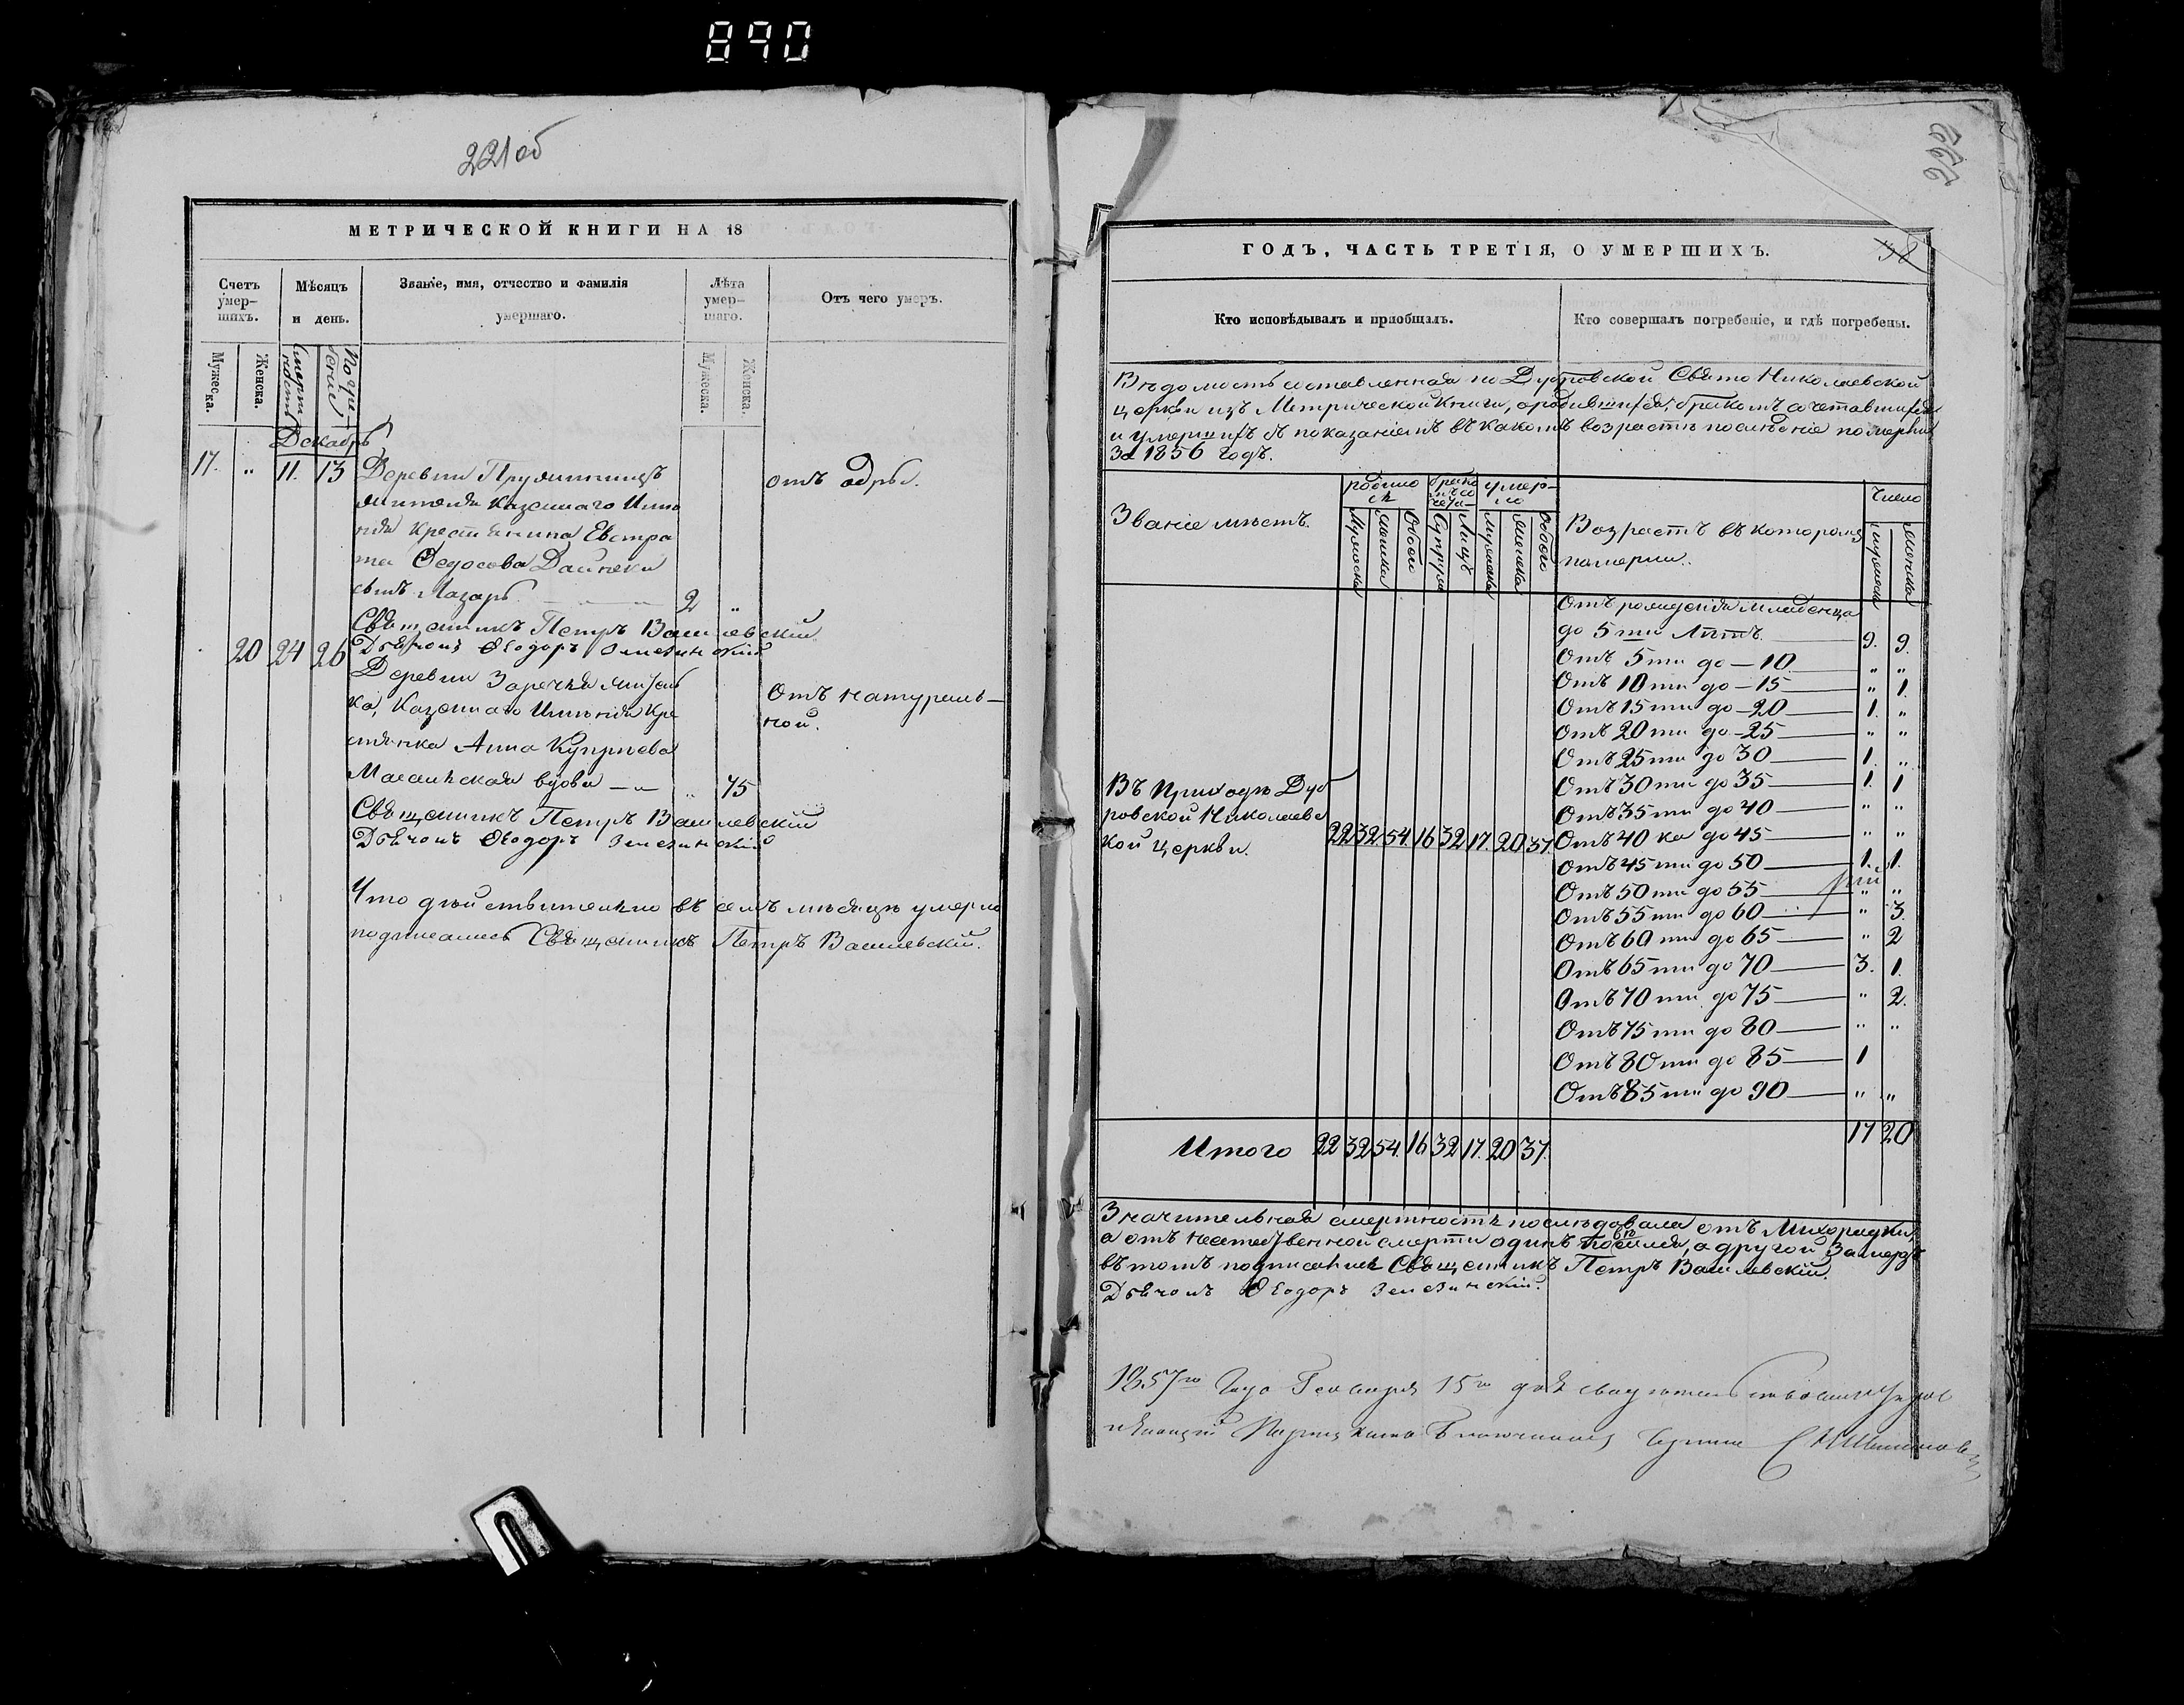 890
221об
МЕТРИЧЕСКОЙ КНИГИ НА 18
Счетъ умер-шихъ.
Мѣсяцъ и день.
Званіе, имя, отчество и фамилія умершаго.
Лѣта умер-шаго.
Отъ чего умеръ.
Мужеска.
Женска.
Смерти
Погре-
Мужеска.
Женска.
Декабрь
17. „ 11. 13 Деревни
жителя Казеннаго Имѣ отъ одры.
нія крестьянина Евстра
тія Федосова Дайнеки
сынъ Лазарь 2 „
Священникъ Петръ Василевскій
20 24 26 Дьячокъ Ѳеодоръ
Деревни Заречья житель
ка, Казеннаго Имѣнія Кре Отъ натураль-
стьянка Анна Купріева ной.
вдова „ 75
Священникъ Петръ Василевскій
Дьячокъ Ѳеодоръ
Что дѣйствительно въ семъ мѣсяцѣ умерло
подписались Священникъ Петръ Василевскій.
222
ГОДЪ, ЧАСТЬ ТРЕТІЯ, О УМЕРШИХЪ.
38
Кто исповѣдывалъ и пріобщалъ.
Кто совершалъ погребеніе, и гдѣ погребены.
Вѣдомость составленная по Дубровской Свято Николаевской
церкви изъ Метрической Книги, о родившихся, бракомъ сочетавшихся
и умершихъ съ показаніемъ въ какомъ возрастѣ послѣдніе померли
За 1856 годъ.
Званіе мѣстъ.
родилось
умер-ло
Мужеска
Женска
Обоего
Супруж
Лицъ
Мужеска
Женска
Обоего
Возрастъ въ которомъ
померли.
Число
мужеска
женска
Отъ рожденія младенца
до 5ти Лѣтъ 9. 9.
Отъ 5ти до — 10 „ „
Отъ 10ти до — 15 „ 1.
Отъ 15ти до — 20 1. „
Отъ 20ти до — 25 „ „
Отъ 25ти до 30 1. „
Отъ 30ти до 35 1. 1
Отъ 35ти до 40 „ „
Отъ 40ка до 45 „ „
Отъ 45ти до 50 1. 1.
Отъ 50ти до 55 „ „
Отъ 55ти до 60 „ 3.
Отъ 60ти до 65 „ 2
Отъ 65ти до 70 3. 1.
Отъ 70ти до 75 „ 2.
Отъ 75ти до 80 „ „
Отъ 80ти до 85 1
Отъ 85ти до 90 „ „
Въ Приходѣ Дуб
ровской Николаевс
кой церкви. 22 32. 54. 16 32 17. 20 37.
Итого 22 32 54. 16 32 17. 20 37. 17 20
Значительная смертность послѣдовала отъ Лихорадки,
а отъ неестественной смерти одинъ а другой Замерзъ
въ томъ подписались Священникъ Петръ Василевскій.
Дьячокъ Ѳеодоръ
1857го Года Генваря 15го дня